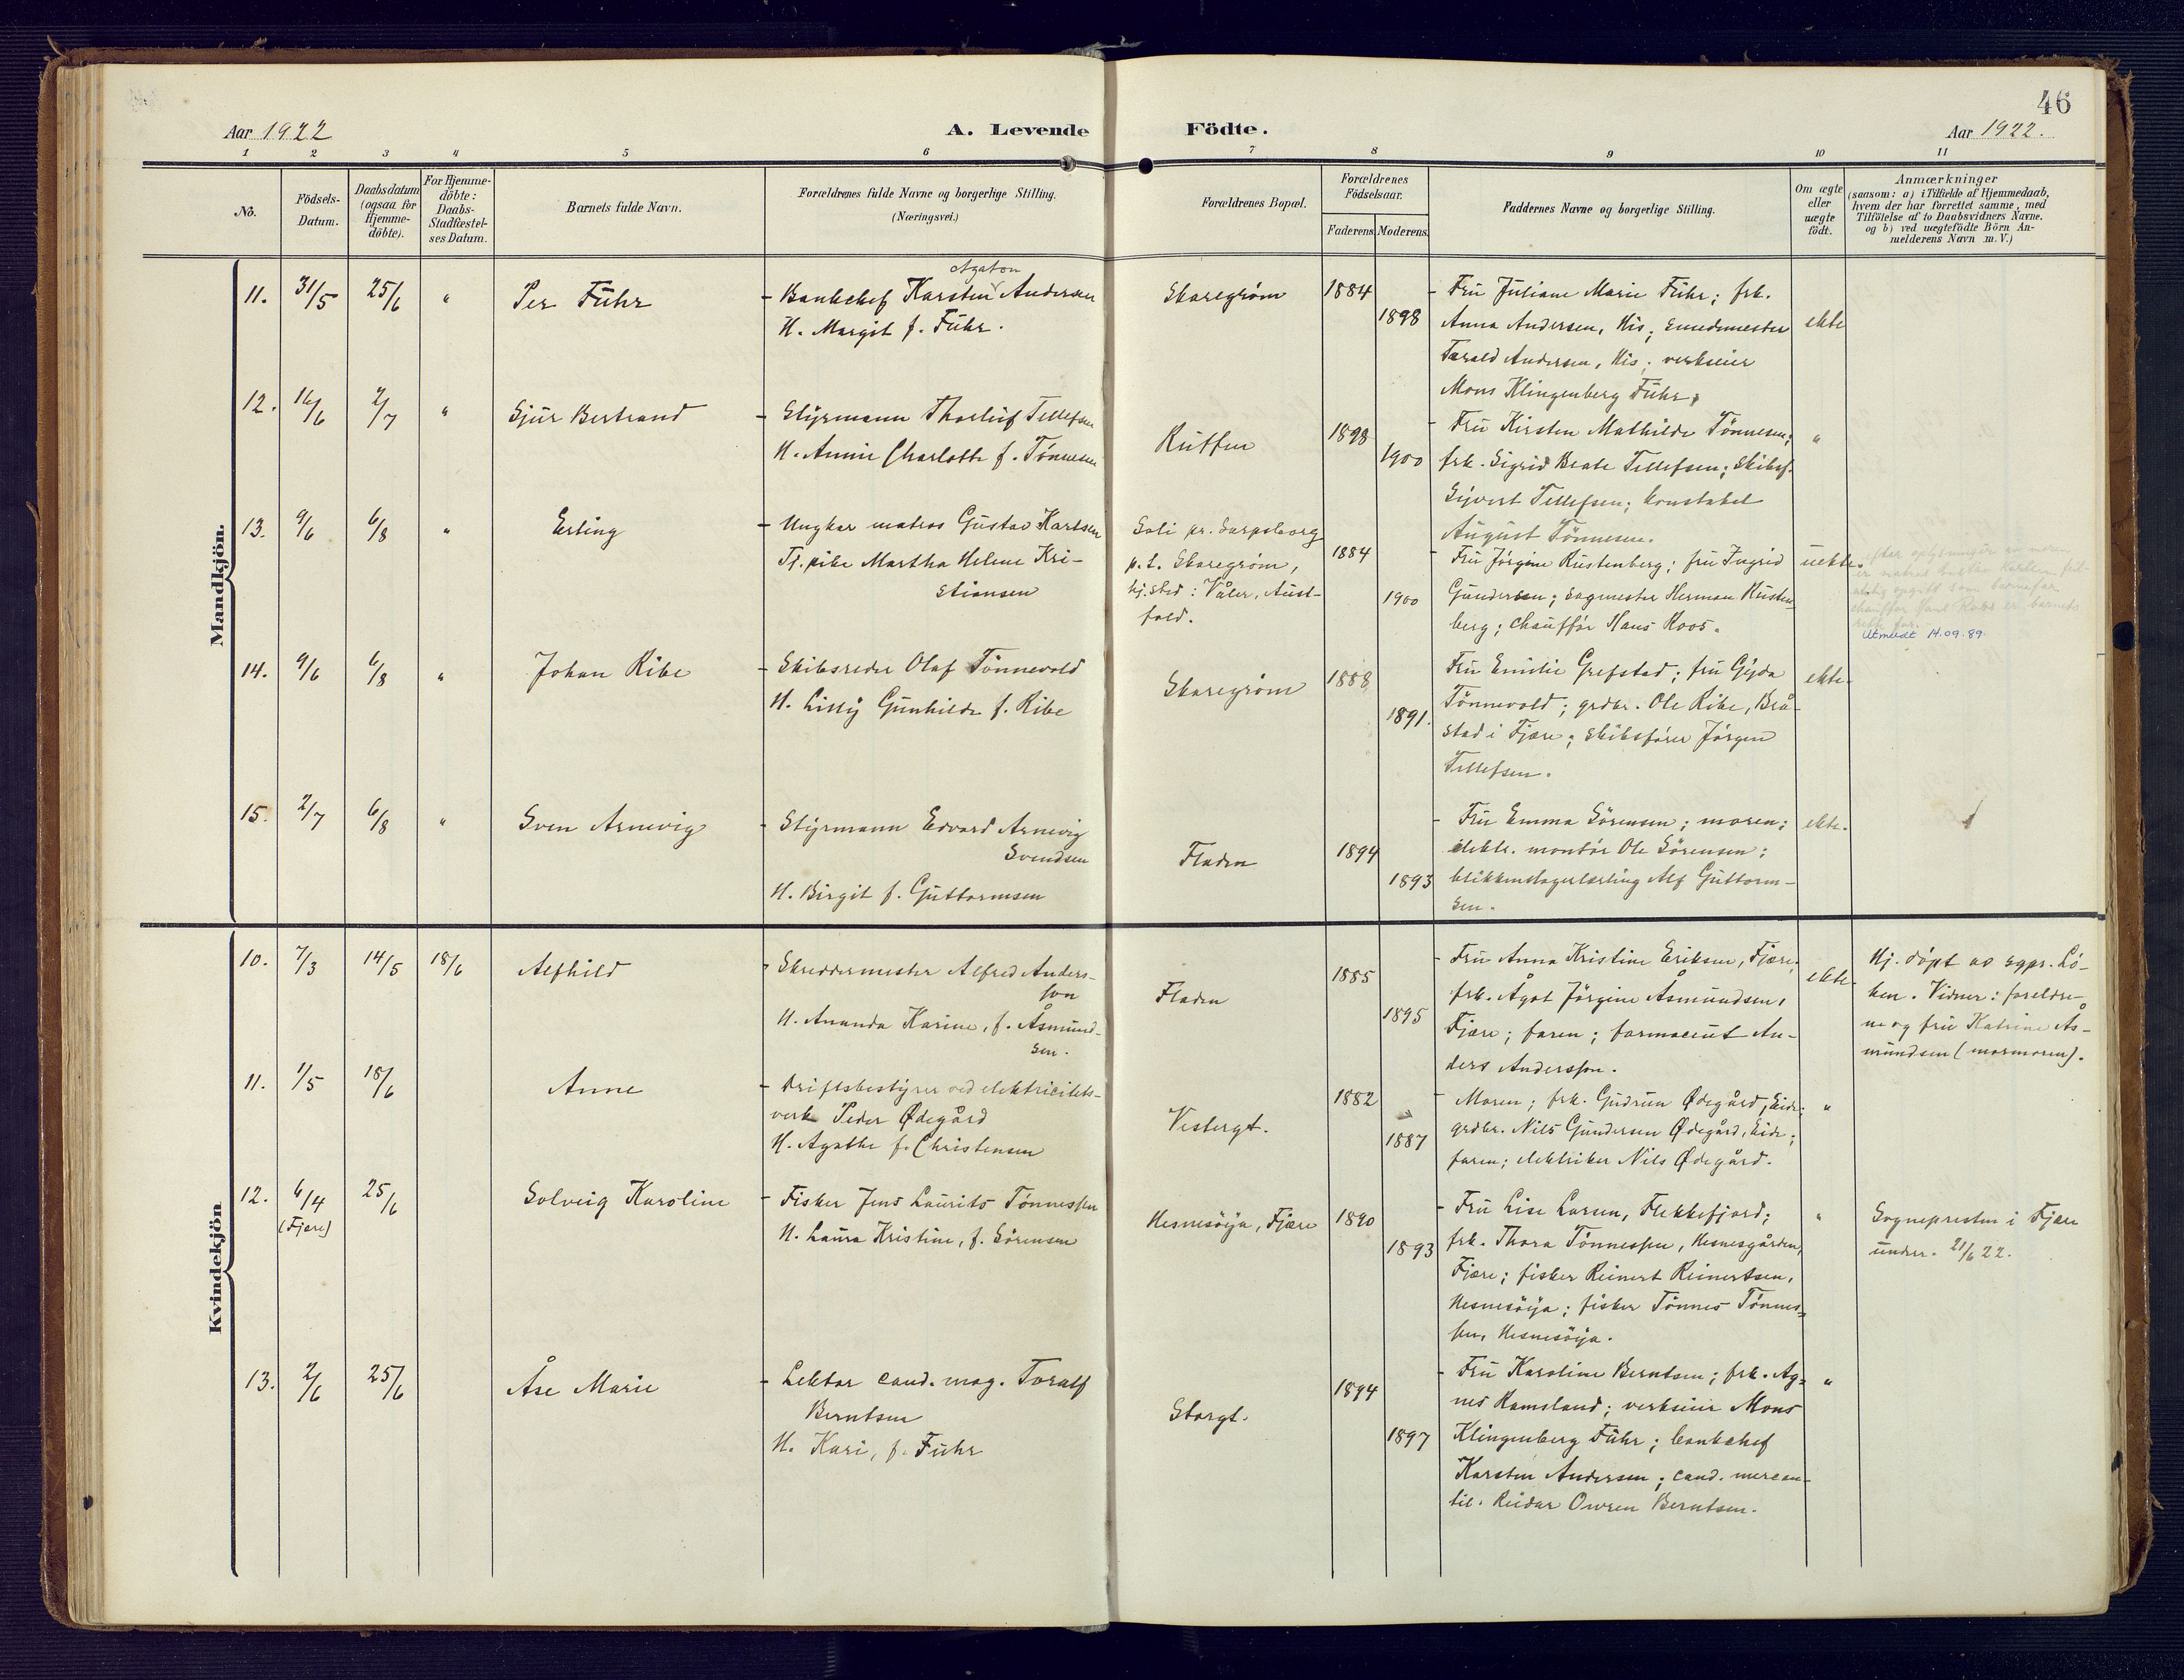 46
Aar 1922
A. Levende
Födte.
Aar 1922.
1 2 3 4 5 6 7 8 9 10 11
No.
Födsels-
Datum.
Daabsdatum
(ogsaa for
Hjemme-
döbte).
For Hjemme-
döbte:
Daabs-
Stadfæstel-
ses Datum.
Barnets fulde Navn.
Forældrenes fulde Navne og borgerlige Stilling.
(Næringsvei.)
Forældrenes Bopæl.
Forældrenes
Födselsaar.
Faderens. Moderens.
Faddernes Navne og borgerlige Stilling.
Om ægte
eller
uægte
födt.
Anmærkninger
(saasom: a) i Tilfælde af Hjemmedaab,
hvem der har forrettet samme, med
Tilföielse af to Daabsvidners Navne.
og b) ved uægtefödte Börn An-
melderens Navn m. V.)
Mandkjön.
11. 31/5 25/6 " Per Führ
Agaton
- Bankchef Karsten Andersen
H. Margit f. Führ.
Skaregrøm
1884
1898
- Fru Juliane Marie Führ; frk.
Anna Andersen, His; smedmester
Terald Andersen, His; verkseier
Mons Klingenberg Führ.
ekte
12. 16/6 2/7 " Sjur Bertrand
- Styrmann Thorleif Tellefsen
H. Annie Charlotte f. Tønnesen
Kuffen
1898
1900
- Fru Kirsten Mathilde Tønnesen;
frk. Sigrid Beate Tellefsen; Skibsf.
Sigvert Tellefsen; konstabel
August Tønnesen.
"
13. 9/6 6/8 " Erling
- Ungkar matros Gustav Karlsen
Tj. pike Martha Helene Kri-
stiansen
Soli pr. Sarpsborg
p.t. Skaregrøm,
hj.sted: Våler, Aust-
fold.
1884
1900
- Fru Jørgine Rustenberg; fru Ingrid
Gundersen; sagmester Herman Rusten-
berg; chauffør Hans Roos.
uekte.
Utmeldt 14.09.89.
14. 9/6 6/8 " Johan Ribe
- Skibsreder Olaf Tønnevold
H. Lissy Gunhilde f. Ribe
Skaregrøm
1888
1891.
Fru Emilie Grefstad; fru Gyda
Tønnevold; grdbr. Ole Ribe, Brå-
stad i Fjære; skibsfører Jørgen
Tellefsen.
ekte.
15. 2/7 6/8 " Sven Arnevig
- Styrmann Edvard Arnevig
Svendsen
H. Birgit f. Guttormsen
Fladen
1894
1893
- Fru Emma Sørensen; moren;
elektr. montør Ole Sørensen;
blikkenslagerlærling Alf Guttorm-
sen.
ekte.
Kvindekjön
10. 7/3 14/5 18/6 Alfhild
- Skreddermester Alfred Anders-
son
H. Amanda Karine, f. Åsmund-
sen.
Fladen
1885
1895
- Fru Anna Kristine Eriksen, Fjære;
frk. Ågot Jørgine Åsmundsen,
Fjære; faren; farmaceut An-
ders Andersson.
ekte.
Hj. døpt av sgpr. Lø-
ken. Vidner: foreldre-
ne og fru Katrine Ås-
mundsen (mormoren).
11. 1/5 18/6 Anne
- Driftsbestyrer ved elektricitets-
verk Peder Ødegård
H. Agathe f. Christensen
Vestergt.
1882
1887
- Moren; frk. Gudrun Ødegård, Eide;
grdbr. Nils Gundersen Ødegård, Eide;
faren; elektriker Nils Ødegård.
"
12. 6/4 25/6 Solveig Karoline
(Fjære)
- Fisker Jens Laurits Tønnessen
H. Laura Kristine, f. Sørensen
Hesnesøya, Fjære
1890
1893
- Fru Lise Larsen, Flekkefjord;
frk. Thora Tønnessen, Hesnesgården,
Fjære; fisker Reinert Reinertsen,
Hesnesøya; fisker Tønnes Tønnes-
sen, Hesnesøya.
"
Sognepresten i Fjære
underr. 21/6 22.
13. 2/6 25/6 Åse Marie
- Lektor cand. mag. Toralf
Berntsen
H. Kari, f. Führ
Storgt.
1894
1897
- Fru Karoline Berntsen; frk. Ag-
nes Ramsland; verkseier Mons
Klingenberg Führ; bankchef
Karsten Andersen; cand. mercan-
til. Reidar Owren Berntsen.
"